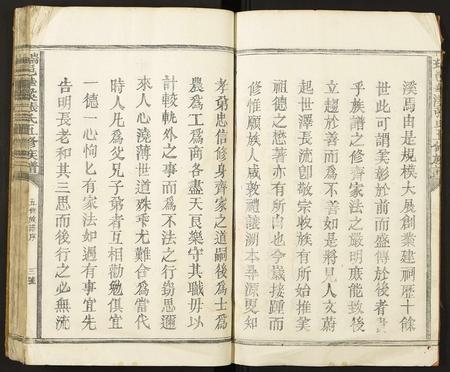 溪馬由是規模大展創業建祠歷十餘
世此可謂美彰於前而盛傳於後者
乎族譜之修齊家法之嚴明庶能致後
立趨於善而為不善如是將見人文蔚
起世澤長流卽敬宗收族有所始推美
祖德之懋著亦有所自也今歲接踵而
修惟願族人咸敦禮讓溯本尋源更知
孝弟忠信修身齊家之道嗣後為士為
農為工為商各盡天良樂守其職毋以
計較軌外之事而為不法之行竊思邇
來人心澆薄世道殊乖尤難合為當代
時人凡為父兄子弟者互相勸勉俱宜
一德一心恂匕有家法如遇有事宜先
告明長老和其三思而後行之必無流
五修族譜
五修族譜序
三號